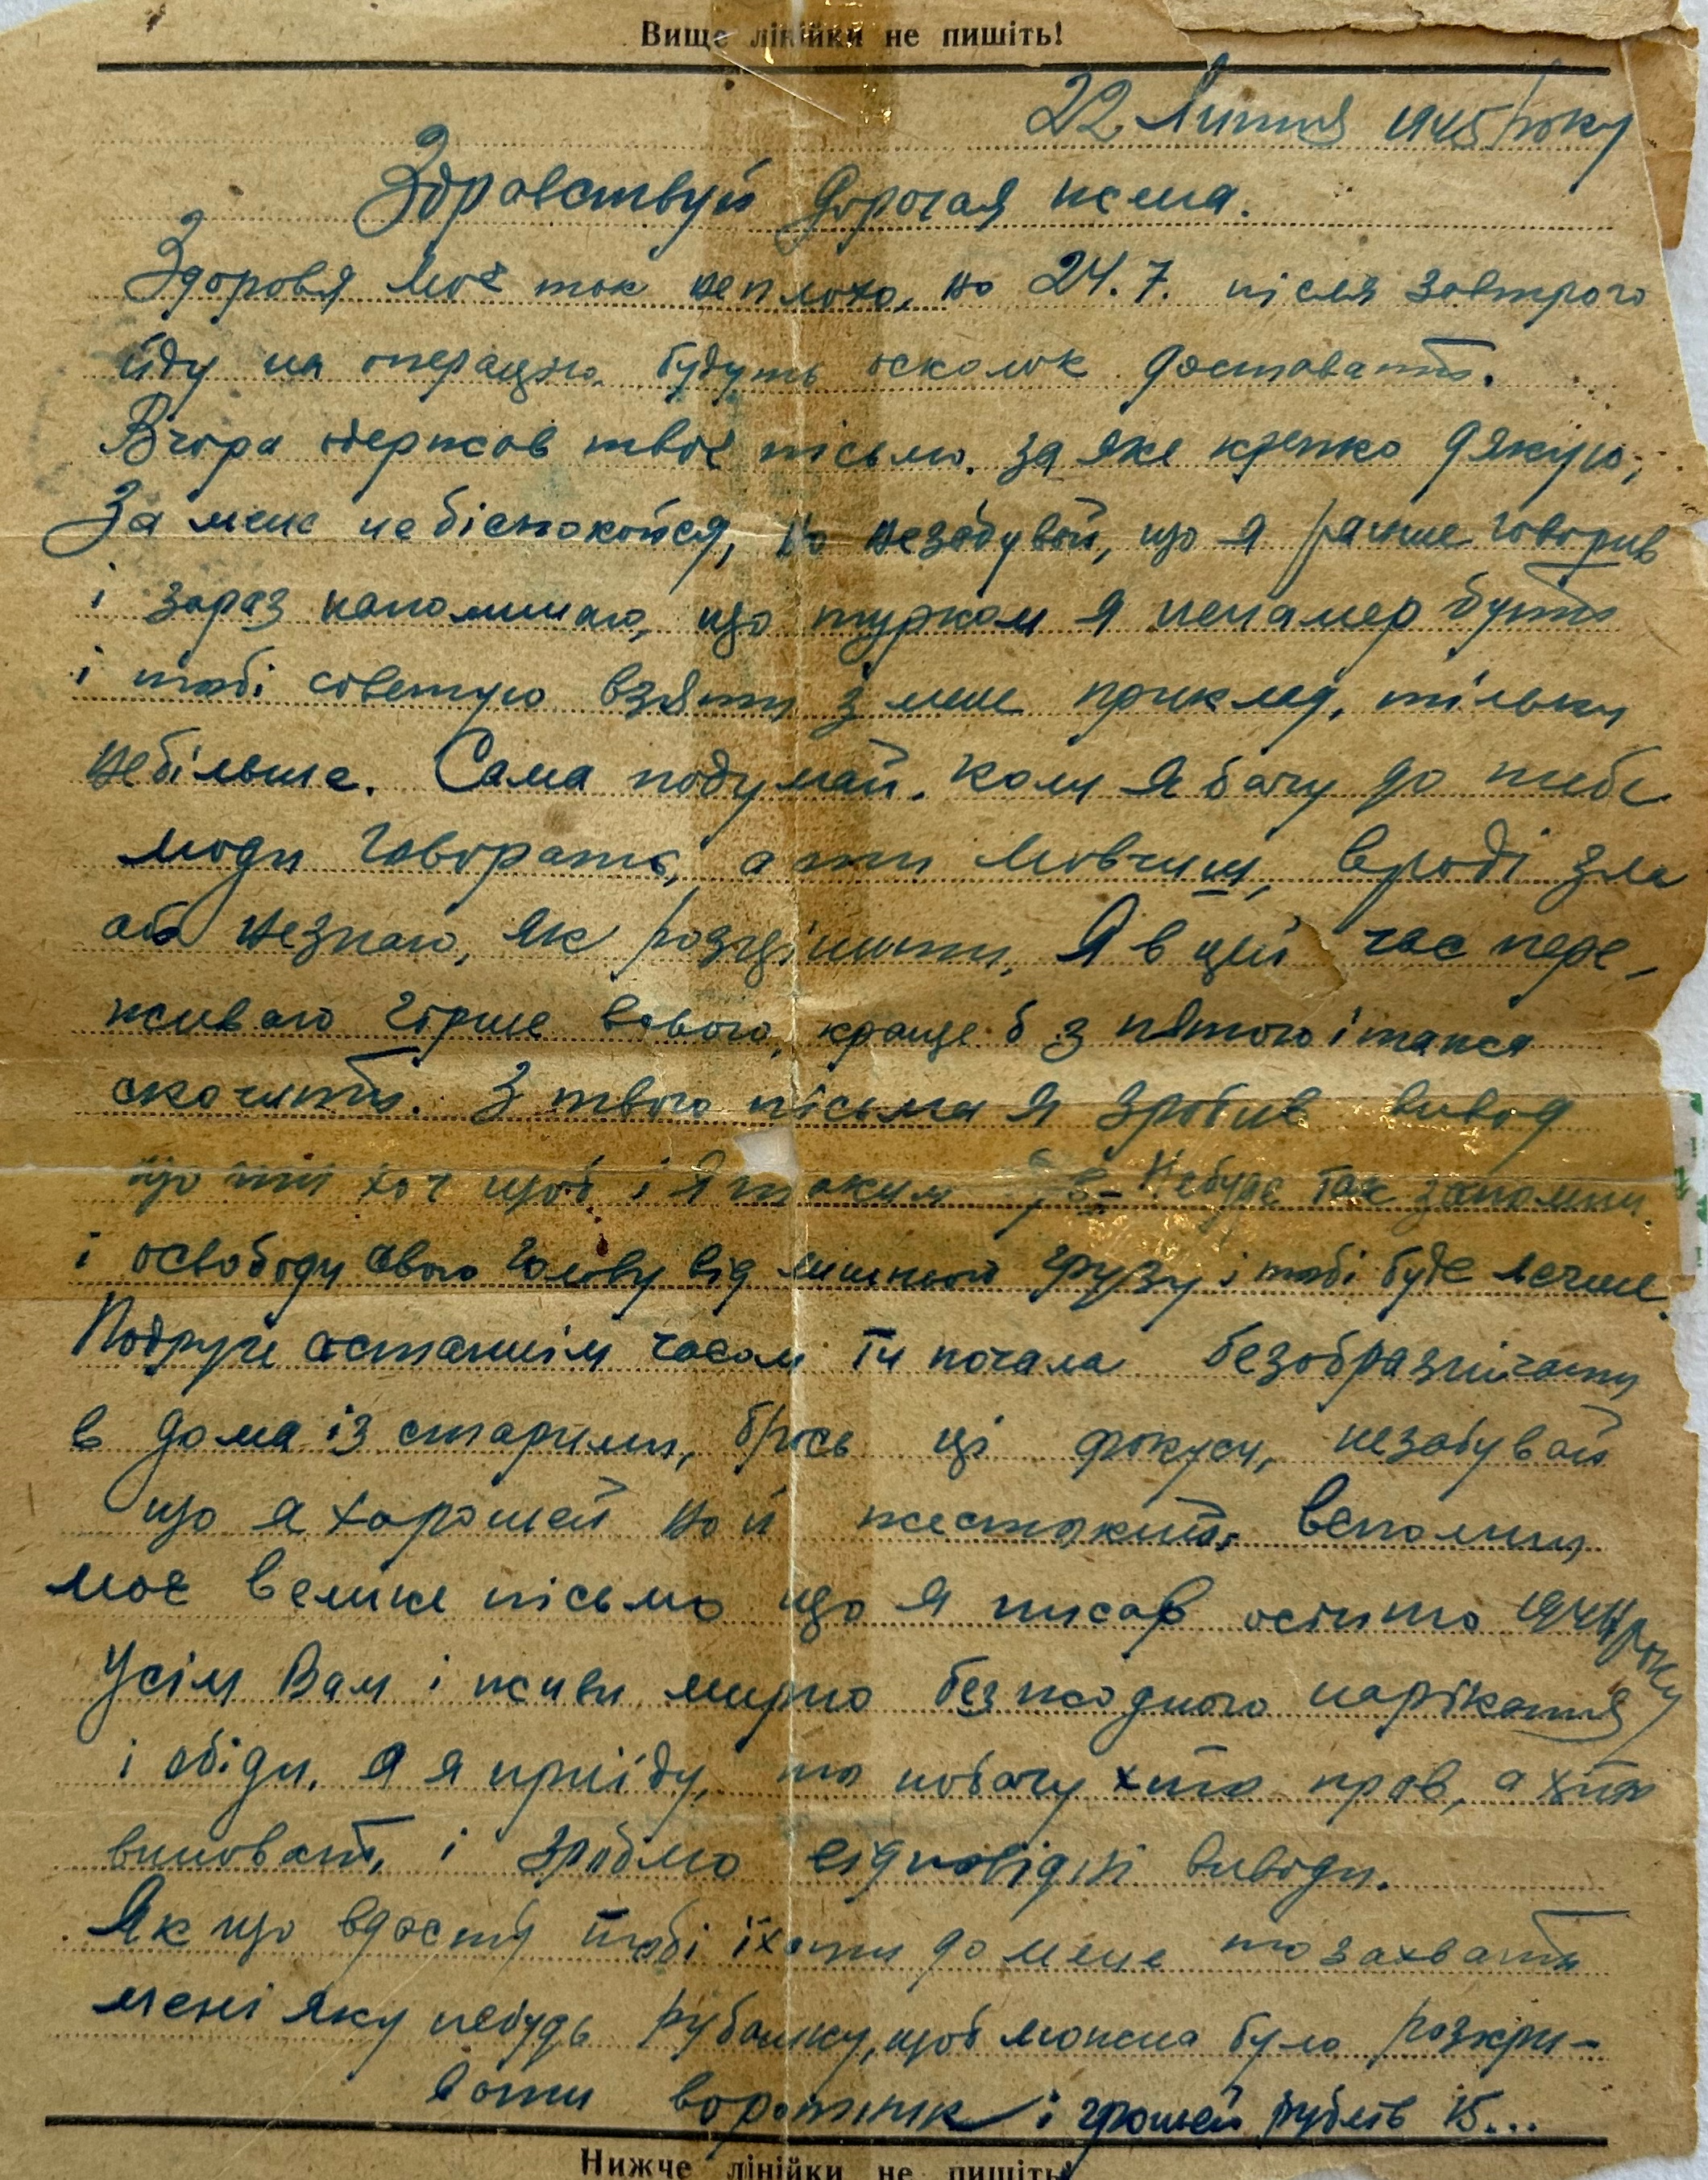 Вище лінійки не пишіть!
22 Липня 1945 року
Здравствуй дорогая жена.
Здоровя моє так неплохо, но 24.7. після завтрого
йду на операцію. будуть осколок доставать.
Вчора одержав твоє пісьмо. за яке крепко дякую,
За мене небіспокойся, но незабувай, що я раніше говорив
і зараз напоминаю, що турком я ненамер бути
і тобі советую взяти з мене приклад, тільки
небільше. Сама подумай. коли я бачу до тебе
люди говорать, а ти мовчиш, вроді зла
або незнаю, як розцінити. Я в цей час пере-
живаю гірше всього, краще б з пятого ітажа
скочить. З твого пісьма я зробив вивод
що ти хоч щоб і я таким Небуде так запомни
і освободи свою голову від лишнього грузу і тобі буде легше.
Подруге останнім часом ти почала безобразнічати
в дома із старими, брось ці фокуси, незабувай
що я хароший но й жестокий, вспомни
моє велике пісьмо що я писав осінню 1944 року
Усім Вам і живи мирно без жодного нарікання
і обіди. А я приїду, то побачу хто прав, а хто
виноват, і зроблю відповідні виводи.
Як що вдасця тобі їхати до мене то захвати
мені яку небудь рубашку, щоб можна було розкри-
вати воротник і грошей рублів 15...
Нижче лінійки не пишіть!